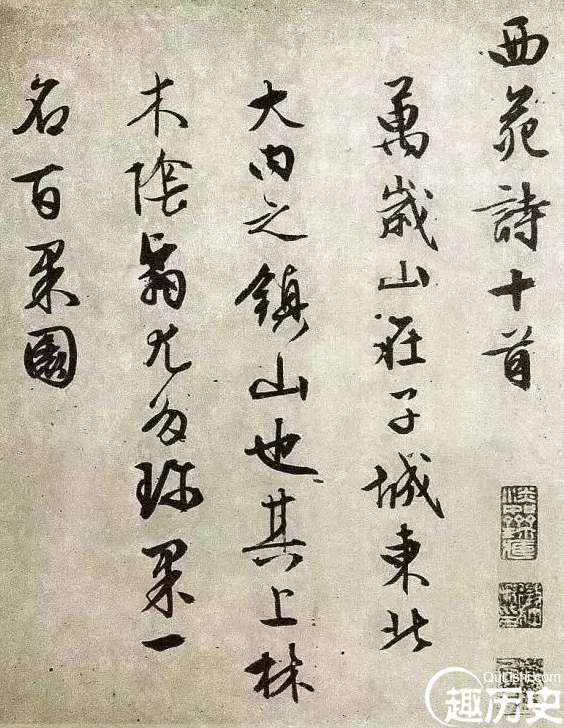 西苑詩十首
萬歲山在子城東北
大内之鎮山也其上林
木陰翳尤多珎果一
名百果園
QuLishi.com
趣历史